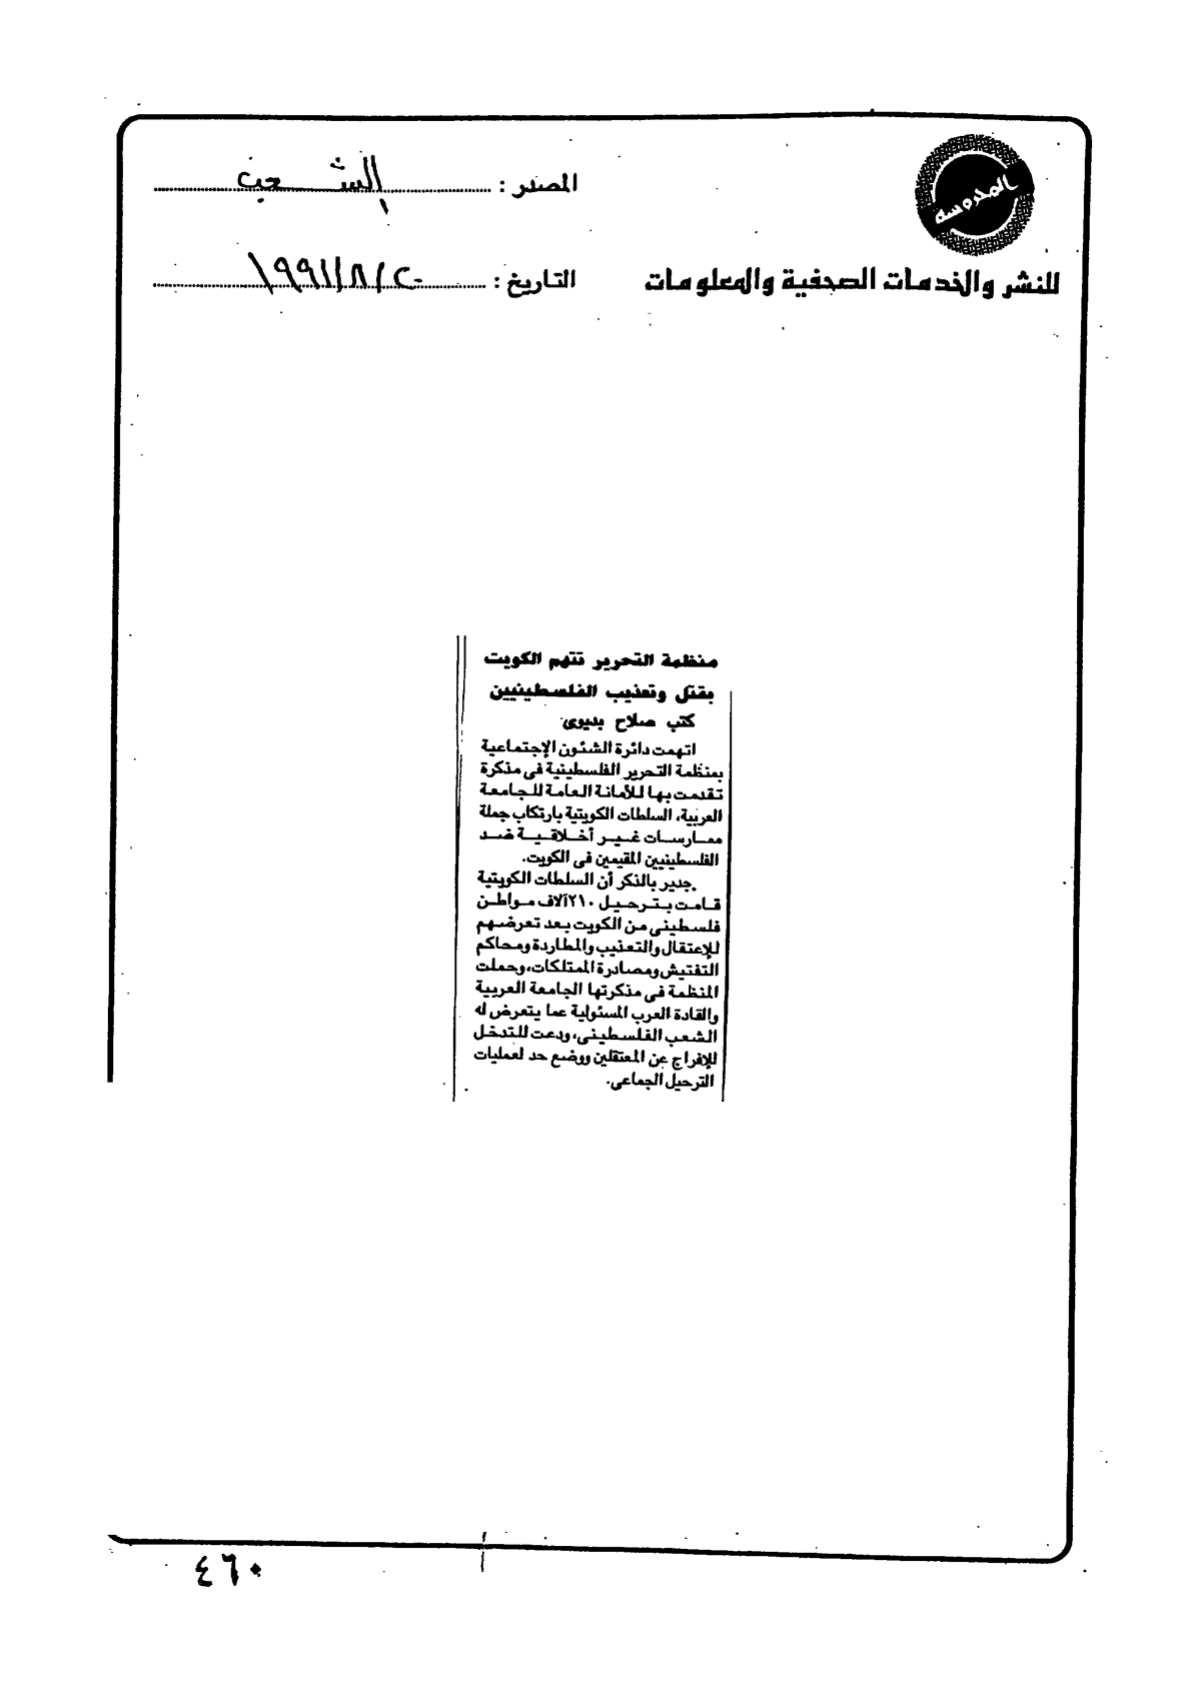 المحروسه
المصدر : الشعب
للنشر والخدمات الصحفية والمعلومات
التاريخ : ٢٠/٨/١٩٩١
منظمة التحرير تتهم الكويت
بقتل وتعذيب الفلسطينيين
كتب صلاح بديوى
اتهمت دائرة الشئون الإجتماعية
بمنظمة التحرير الفلسطينية فى مذكرة
تقدمت بها للأمانة العامة للجامعة
العربية، السلطات الكويتية بارتكاب جملة
ممارسات غير أخلاقية ضد
الفلسطينيين المقيمين فى الكويت.
جدير بالذكر أن السلطات الكويتية
قامت بترحيل ٢١٠ آلاف مواطن
فلسطينى من الكويت بعد تعرضهم
للإعتقال والتعذيب والمطاردة ومحاكم
التفتيش ومصادرة الممتلكات، وحملت
المنظمة فى مذكرتها الجامعة العربية
والقادة العرب المسئولية عما يتعرض له
الشعب الفلسطينى، ودعت للتدخل
للإفراج عن المعتقلين ووضع حد لعمليات
الترحيل الجماعى.
٤٦٠